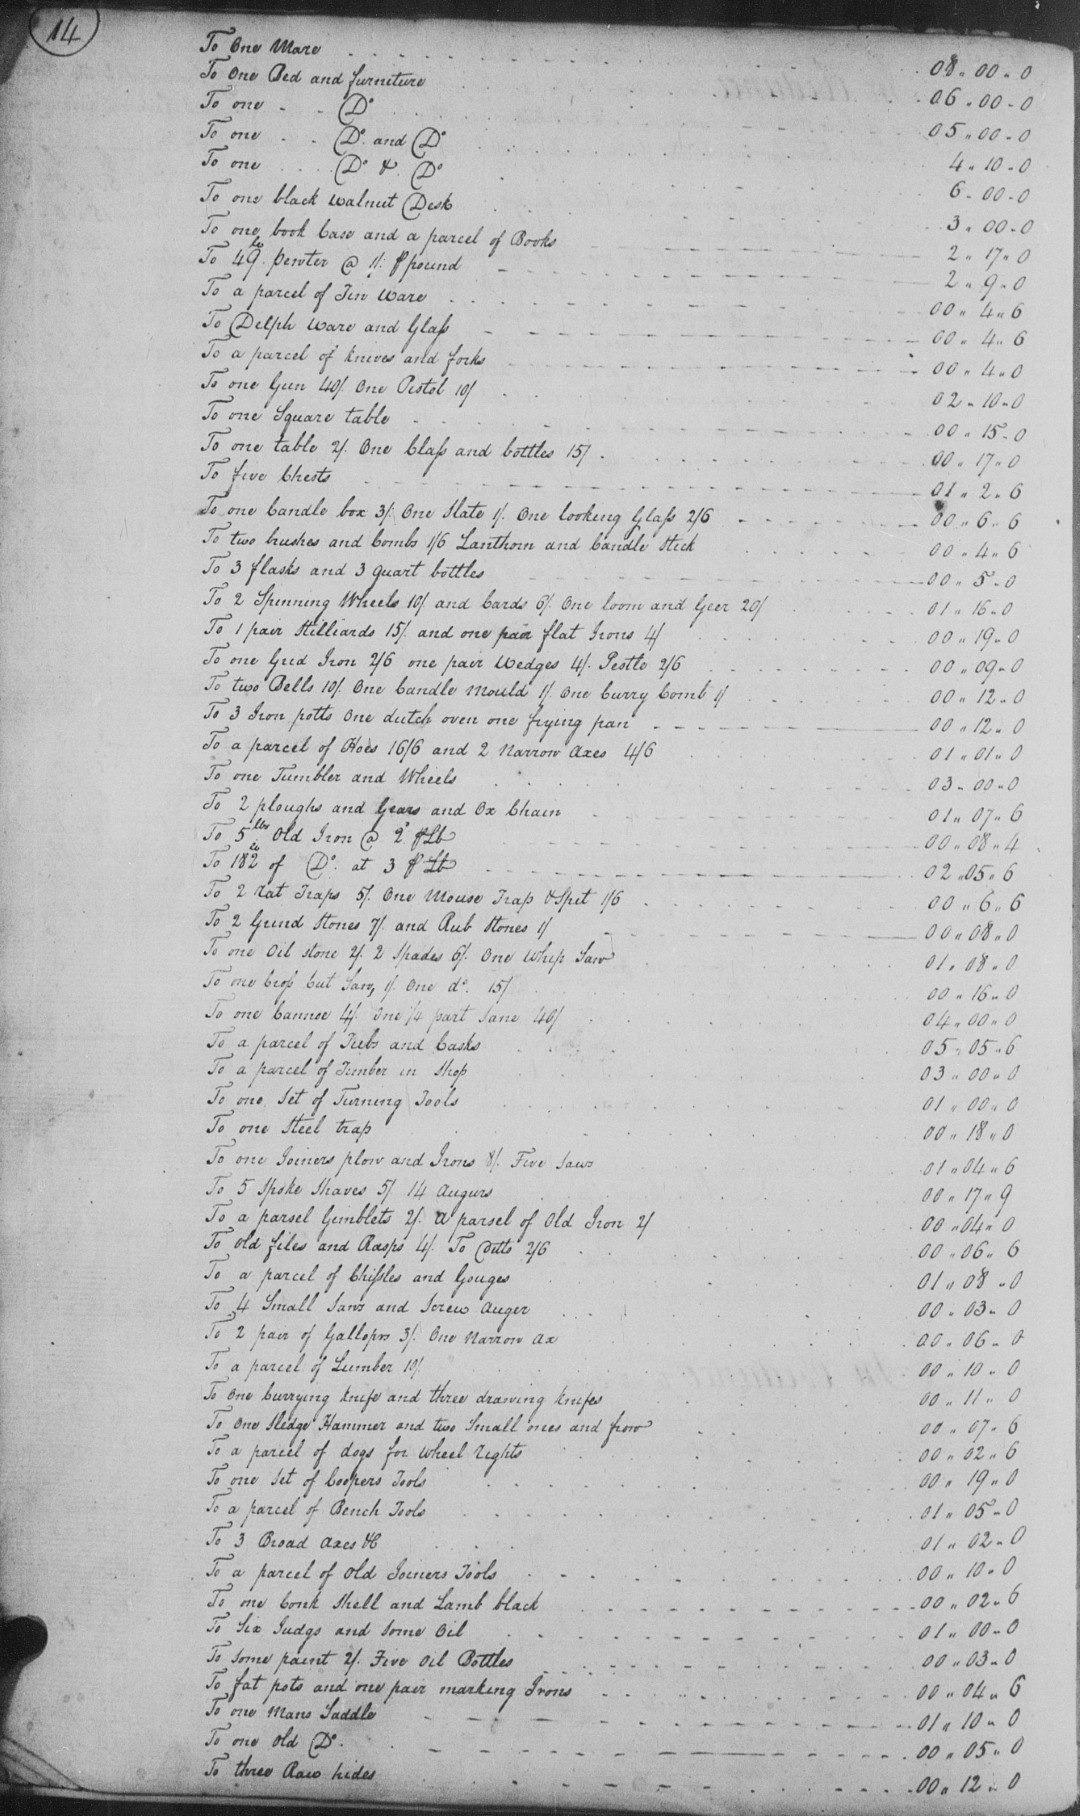 14
To One Mare 08,,00,,0
To One Bed and furniture 06,,00,,0
To one Do 05,,00,,0
To one Do. and Do 4,,10,,0
To one Do & Do 6,,00,,0
To one black walnut Desk 3,,00,,0
To one book Case and a parcel of Books 2,,17,,0
To 49 lb. Pewter @ 1/. ⅌ pound 2,,9,,0
To a parcel of Tin Ware 00,,4,,6
To Delph Ware and Glass 00,,4,,6
To a parcel of knives and forks 00,,4,,0
To one Gun 40/. One Pistol 10/ 02,,10,,0
To one Square table 00,,15,,0
To one table 2/. One Class and bottles 15/. 00,,17,,0
To five Chests 01,,2,,6
To one Candle box 3/. One Slate 1/. One looking Glass 2/6 00,,6,,6
To two brushes and Combs 1/6 Lanthorn and Candle Stick 00,,4,,6
To 3 flasks and 3 quart bottles 00,,5,,0
To 2 Spinning Wheels 10/ and Cards 6/. One loom and Geer 20/ 01,,16,,0
To 1 pair Stilliards 15/. and one pair flat Irons 4/ 00,,19,,0
To one Grid Iron 2/6 one pair Wedges 4/. Pestle 2/6 00,,09,,0
To two Bells 10/. One Candle Mould 1/. One Curry Comb 1/ 00,,12,,0
To 3 Iron potts One dutch oven one frying pan 00,,12,,0
To a parcel of Hoes 16/6 and 2 Narrow Axes 4/6 01,,01,,0
To one Tumbler and Wheels 03,,00,,0
To 2 ploughs and Gears and Ox Chain 01,,07,,6
To 5 lbs Old Iron @ 2d ⅌ Lb 00,,08,,4
To 182 lb of Do. at 3 ⅌ Lb 02,,05,,6
To 2 rat Traps 5/. One Mouse Trap & Spit 1/6 00,,6,,6
To 2 Grind Stones 7/. and Rub Stones 1/ 00,,08,,0
To one Oil stone 2/. 2 Spades 6/. One Whip Saw 01,,08,,0
To one Cross Cut Saw, 1/. One do. 15/ 00,,16,,0
To one Cannoe 4/. One 1/4 part Sane 40/ 04,,00,,0
To a parcel of Tubs and Casks 05,,05,,6
To a parcel of Timber in Shop 03,,00,,0
To one Set of Turning Tools 01,,00,,0
To one Steel trap 00,,18,,0
To one Joiners plow and Irons 8/. Five Saws 01,,04,,6
To 5 Spoke Shaves 5/ 14 Augurs 00,,17,,9
To a parsel Gimblets 2/. a parsel of Old Iron 2/ 00,,04,,0
To old files and Rasps 4/. To Ditto 2/6 00,,06,,6
To a parcel of Chissles and Gouges 01,,08,,0
To 4 Small Saws and Screw Auger 00,,03,,0
To 2 pair of 3/. One Narrow ax 00,,06,,0
To a parcel of Lumber 10/ 00,,10,,0
To One Currying knife and three drawing knifes 00,,11,,0
To One Sledge Hammer and two Small ones and frow 00,,07,,6
To a parcel of dogs for wheel rights 00,,02,,6
To one Set of Coopers Tools 00,,19,,0
To a parcel of Bench Tools 01,,05,,0
To 3 Broad Axes &C 01,,02,,0
To a parcel of Old Joiners Tools 00,,10,,0
To one Conk Shell and Lamb black 00,,02,,6
To Six Judgs and some Oil 01,,00,,0
To Some paint 2/. Five Oil Bottles 00,,03,,0
To fat pots and one pair marking Irons 00,,04,,6
To one Mans Saddle 01,,10,,0
To one Old Do. 00,,05,,0
To three Raw hides 00,,12,,0